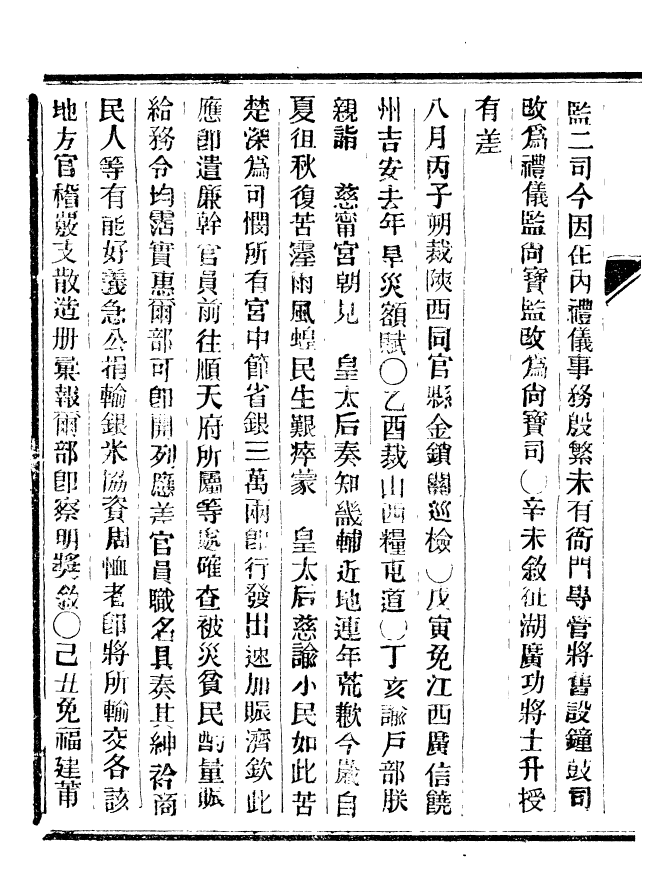 監二司今因在內禮儀事務殷繁未有衙門專管將舊設鐘鼓司
改爲禮儀監尙寶監改爲尙寶司〇辛未敘征湖廣功將士升授
有差
八月丙子朔裁陝西同官縣金鎖關巡檢〇戊寅免江西廣信饒
州吉安去年旱災額賦〇乙酉裁山西糧屯道〇丁亥諭戶部朕
親詣　慈甯宮朝見　皇太后奏知畿輔近地連年荒歉今歲自
夏徂秋復苦霪雨風蝗民生艱瘁蒙　皇太后慈諭小民如此苦
楚深爲可憫所有宮中節省銀三萬兩卽行發出速加賑濟欽此
應卽遣廉幹官員前往順天府所屬等處確查被災貧民酌量賑
給務令均霑實惠爾部可卽開列應差官員職名具奏其紳衿商
民人等有能好義急公捐輸銀米協資周恤者卽將所輸交各該
地方官稽覈支散造册彙報爾部卽察明獎敘〇己丑免福建莆